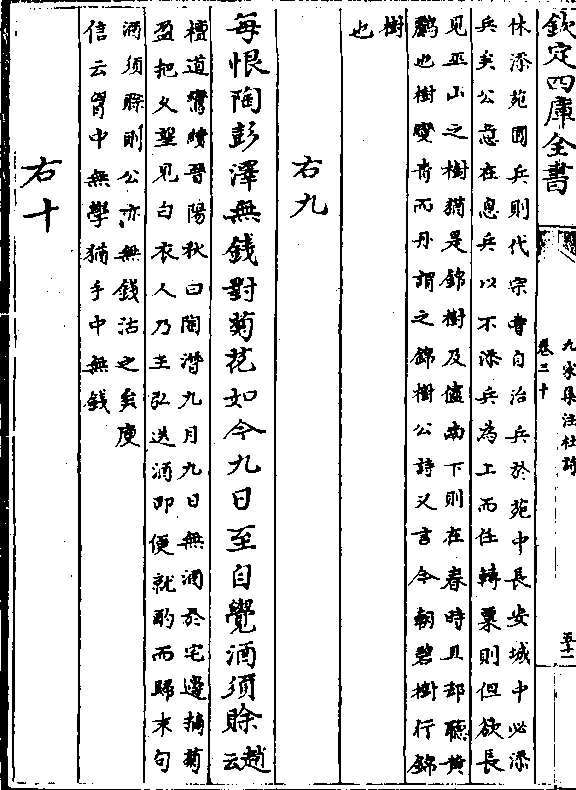 欽定四庫全書
九家集注杜詩
卷三十
五十二
休添苑囿兵則代宗嘗自治兵於苑中長安城中必添
兵矣公意在息兵以不添兵為上而任轉粟則但欲長
見巫山之樹猶是錦樹及儘南下則在春時且却聽黃
鸝也樹變青而丹謂之錦樹公詩又言今朝碧樹行錦
樹
也
右九
每恨陶彭澤無錢對菊花如今九日至自覺酒須賒趙云
檀道鸞續晉陽秋曰陶潛九月九日無酒於宅邊摘菊
盈把久望見白衣人乃王弘送酒即便就酌而歸末句
酒須賒則公亦無錢沽之矣庾
信云胷中無學猶手中無錢
右十